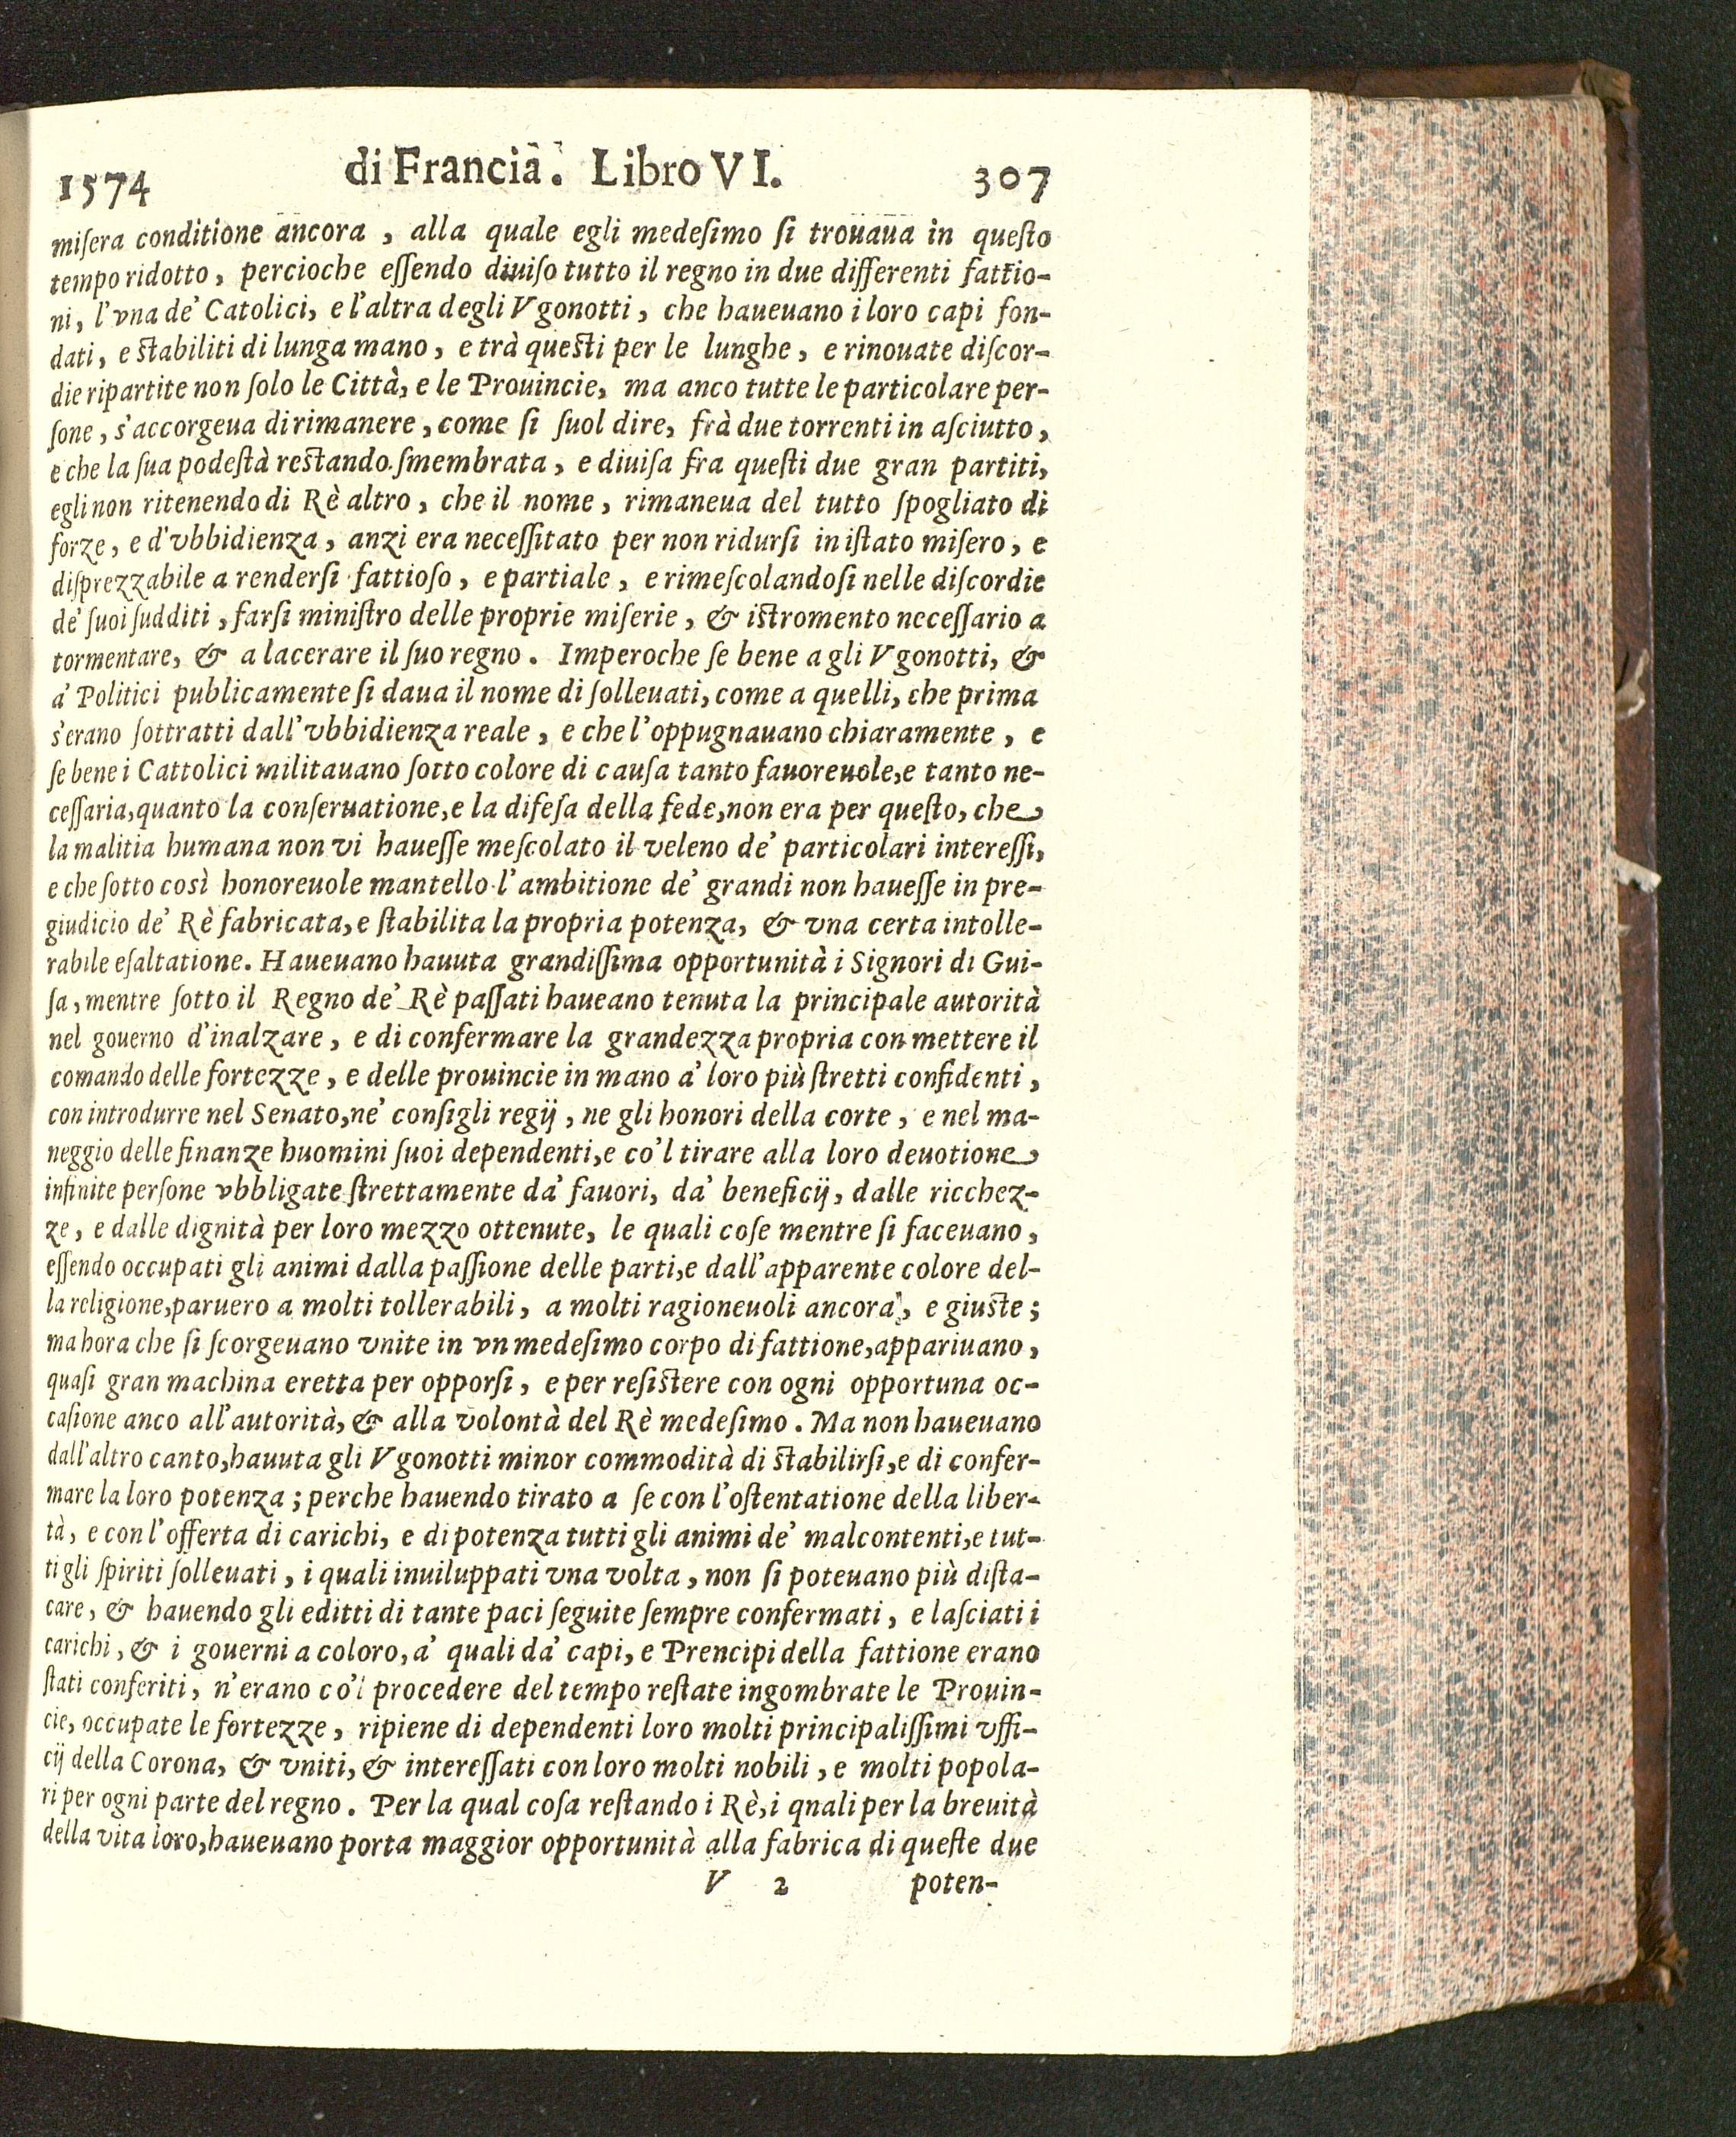 1574 di Francia. Libro VI. 307
miſera conditione ancora, alla quale egli medeſimo ſi trouaua in queſto
tempo ridotto, percioche eſſendo diuiſo tutto il regno in due differenti fattio-
ni, l'vna de' Catolici, e l'altra degli Vgonotti, che haueuano i loro capi fon-
dati, e ſtabiliti di lunga mano, e trà queſti per le lunghe, e rinouate diſcor-
die ripartite non ſolo le Città, e le Prouincie, ma anco tutte le particolare per-
ſone, s'accorgeua di rimanere, come ſi ſuol dire, frà due torrenti in aſciutto,
e che la ſua podeſtà reſtando ſmembrata, e diuiſa fra queſti due gran partiti,
egli non ritenendo di Rè altro, che il nome, rimaneua del tutto ſpogliato di
forze, e d'vbbidienza, anzi era neceſſitato per non ridurſi in iſtato miſero, e
diſprezzabile a renderſi fattioſo, e partiale, e rimeſcolandoſi nelle diſcordie
de' ſuoi ſudditi, farſi miniſtro delle proprie miſerie, & iſtromento neceſſario a
tormentare, & a lacerare il ſuo regno. Imperoche ſe bene a gli Vgonotti, &
a' Politici publicamente ſi daua il nome di ſolleuati, come a quelli, che prima
s'erano ſottratti dall'vbbidienza reale, e che l'oppugnauano chiaramente, e
ſe bene i Cattolici militauano ſotto colore di cauſa tanto fauoreuole, e tanto ne-
ceſſaria, quanto la conſeruatione, e la difeſa della fede, non era per queſto, che
la malitia humana non vi haueſſe meſcolato il veleno de' particolari intereſſi,
e che ſotto così honoreuole mantello l'ambitione de' grandi non haueſſe in pre-
giudicio de' Rè fabricata, e ſtabilita la propria potenza, & vna certa intolle-
rabile eſaltatione. Haueuano hauuta grandiſſima opportunità i Signori di Gui-
ſa, mentre ſotto il Regno de' Rè paſſati haueano tenuta la principale autorità
nel gouerno d'inalzare, e di confermare la grandezza propria con mettere il
comando delle fortezze, e delle prouincie in mano a' loro più ſtretti confidenti,
con introdurre nel Senato, ne' conſigli regij, ne gli honori della corte, e nel ma-
neggio delle finanze huomini ſuoi dependenti, e co'l tirare alla loro deuotione
infinite perſone vbbligate ſtrettamente da' fauori, da' beneficij, dalle ricchez-
ze, e dalle dignità per loro mezzo ottenute, le quali coſe mentre ſi faceuano,
eſſendo occupati gli animi dalla paſſione delle parti, e dall'apparente colore del-
la religione, paruero a molti tollerabili, a molti ragioneuoli ancora, e giuſte;
ma hora che ſi ſcorgeuano vnite in vn medeſimo corpo di fattione, appariuano,
quaſi gran machina eretta per opporſi, e per reſiſtere con ogni opportuna oc-
caſione anco all'autorità, & alla volontà del Rè medeſimo. Ma non haueuano
dall'altro canto, hauuta gli Vgonotti minor commodità di ſtabilirſi, e di confer-
mare la loro potenza; perche hauendo tirato a ſe con l'oſtentatione della liber-
tà, e con l'offerta di carichi, e di potenza tutti gli animi de' malcontenti, e tut-
ti gli ſpiriti ſolleuati, i quali inuiluppati vna volta, non ſi poteuano più diſta-
care, & hauendo gli editti di tante paci ſeguite ſempre confermati, e laſciati i
carichi, & i gouerni a coloro, a' quali da' capi, e Prencipi della fattione erano
ſtati conferiti, n'erano co'l procedere del tempo reſtate ingombrate le Prouin-
cie, occupate le fortezze, ripiene di dependenti loro molti principaliſſimi vffi-
cij della Corona, & vniti, & intereſſati con loro molti nobili, e molti popola-
ri per ogni parte del regno. Per la qual coſa reſtando i Rè, i qnali per la breuità
della vita loro, haueuano porta maggior opportunità alla fabrica di queſte due
V 2 poten-